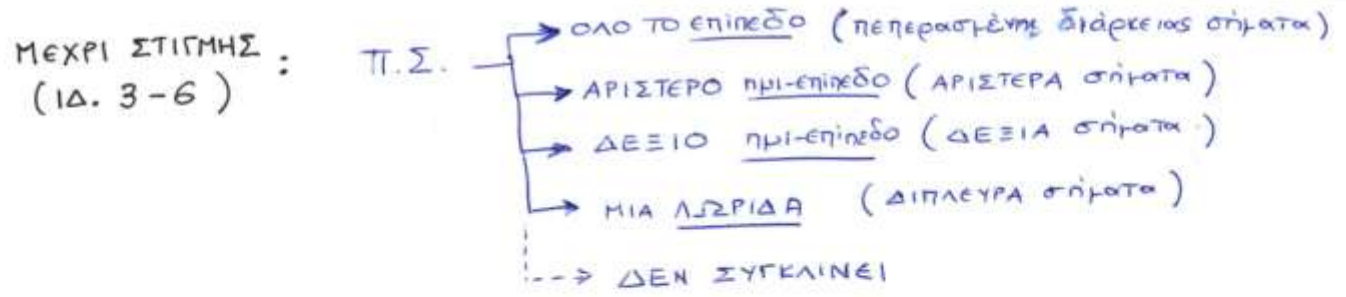 ΜΕΧΡΙ ΣΤΙΓΜΗΣ :
(ΙΔ. 3-6)
Π.Σ.
ΟΛΟ ΤΟ επίπεδο (πεπερασμένης διάρκειας σήματα)
ΑΡΙΣΤΕΡΟ ημι-επίπεδο (ΑΡΙΣΤΕΡΑ σήματα)
ΔΕΞΙΟ ημι-επίπεδο (ΔΕΞΙΑ σήματα)
ΜΙΑ ΛΩΡΙΔΑ (ΔΙΠΛΕΥΡΑ σήματα)
ΔΕΝ ΣΥΓΚΛΙΝΕΙ